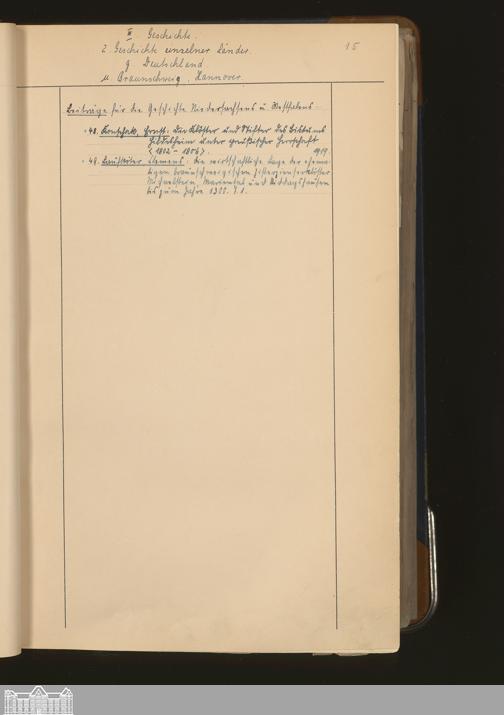 III Geschichte.
2. Geschichte einzelner Länder.
15
g Deutschland
u Braunschweig, Hannover.
Beiträge für die Geschichte Niedersachsens u. Westfalens
48. Konschak, Ernst: Die Klöster und Stifter des Bistums
Hildesheim unter preußischer Herrschaft
<1802-1806>. 1919.
49. Clemens: Die wirtschaftliche Lage der ehema-
ligen braunschweigischen Zisterzienserklöster
Michaelstein, Mariental und Riddagshausen
bis zum Jahre 1300. T. 1.